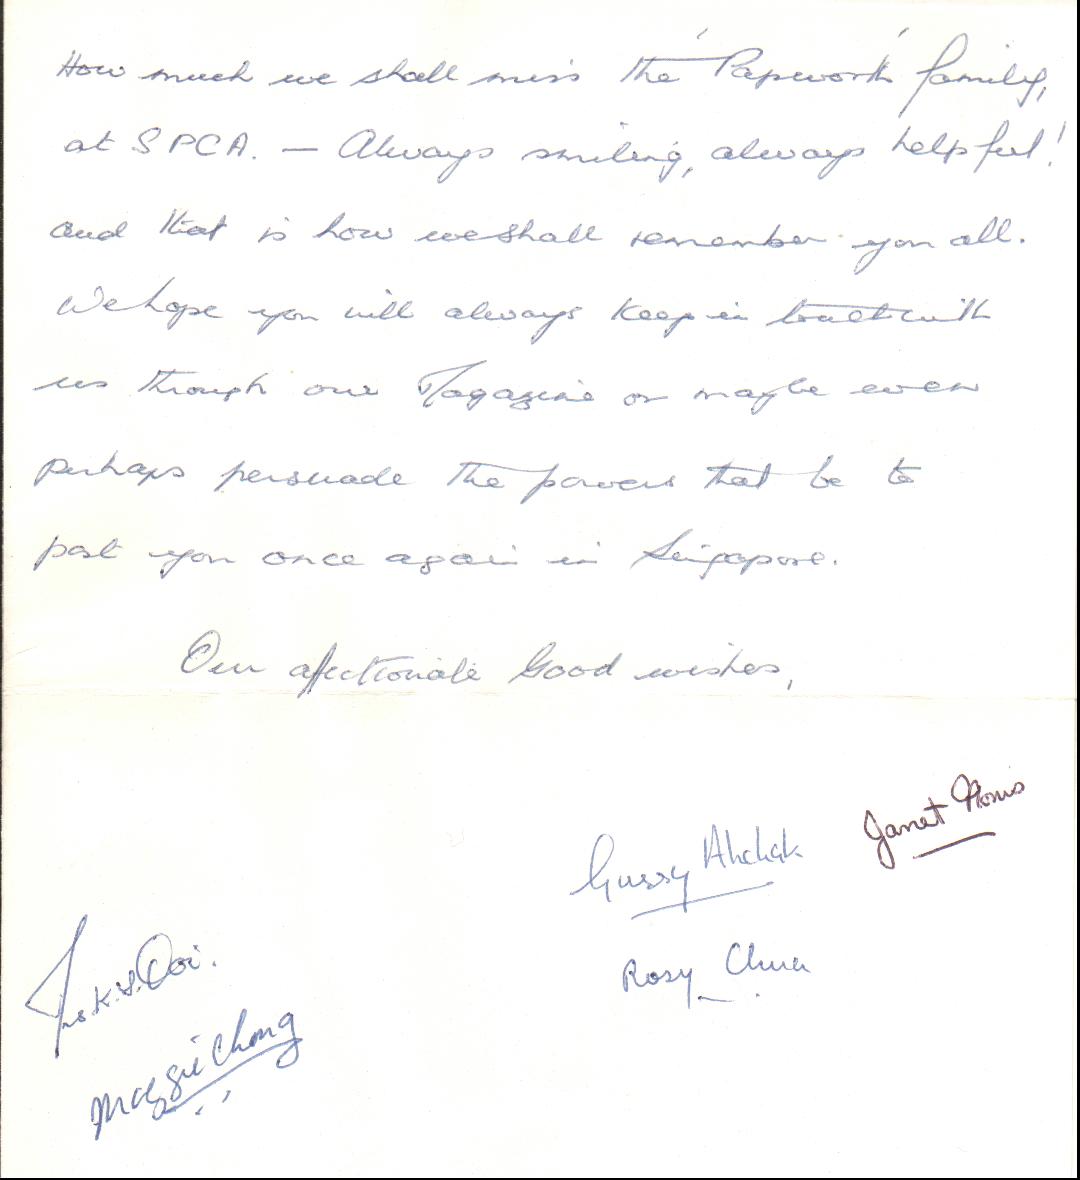 How much we shall miss the 'Papwork' family,
at SPCA. — Always smiling, always helpful!
and that is how we shall remember you all.
We hope you will always keep in touch with
us through our Magazine or maybe even
perhaps persuade the powers that be to
post you once again in Singapore.
Our affectionate Good wishes,
Janet
Gussy
Rosy Chua
Mrs. K. S. Ooi.
Maggie Chong